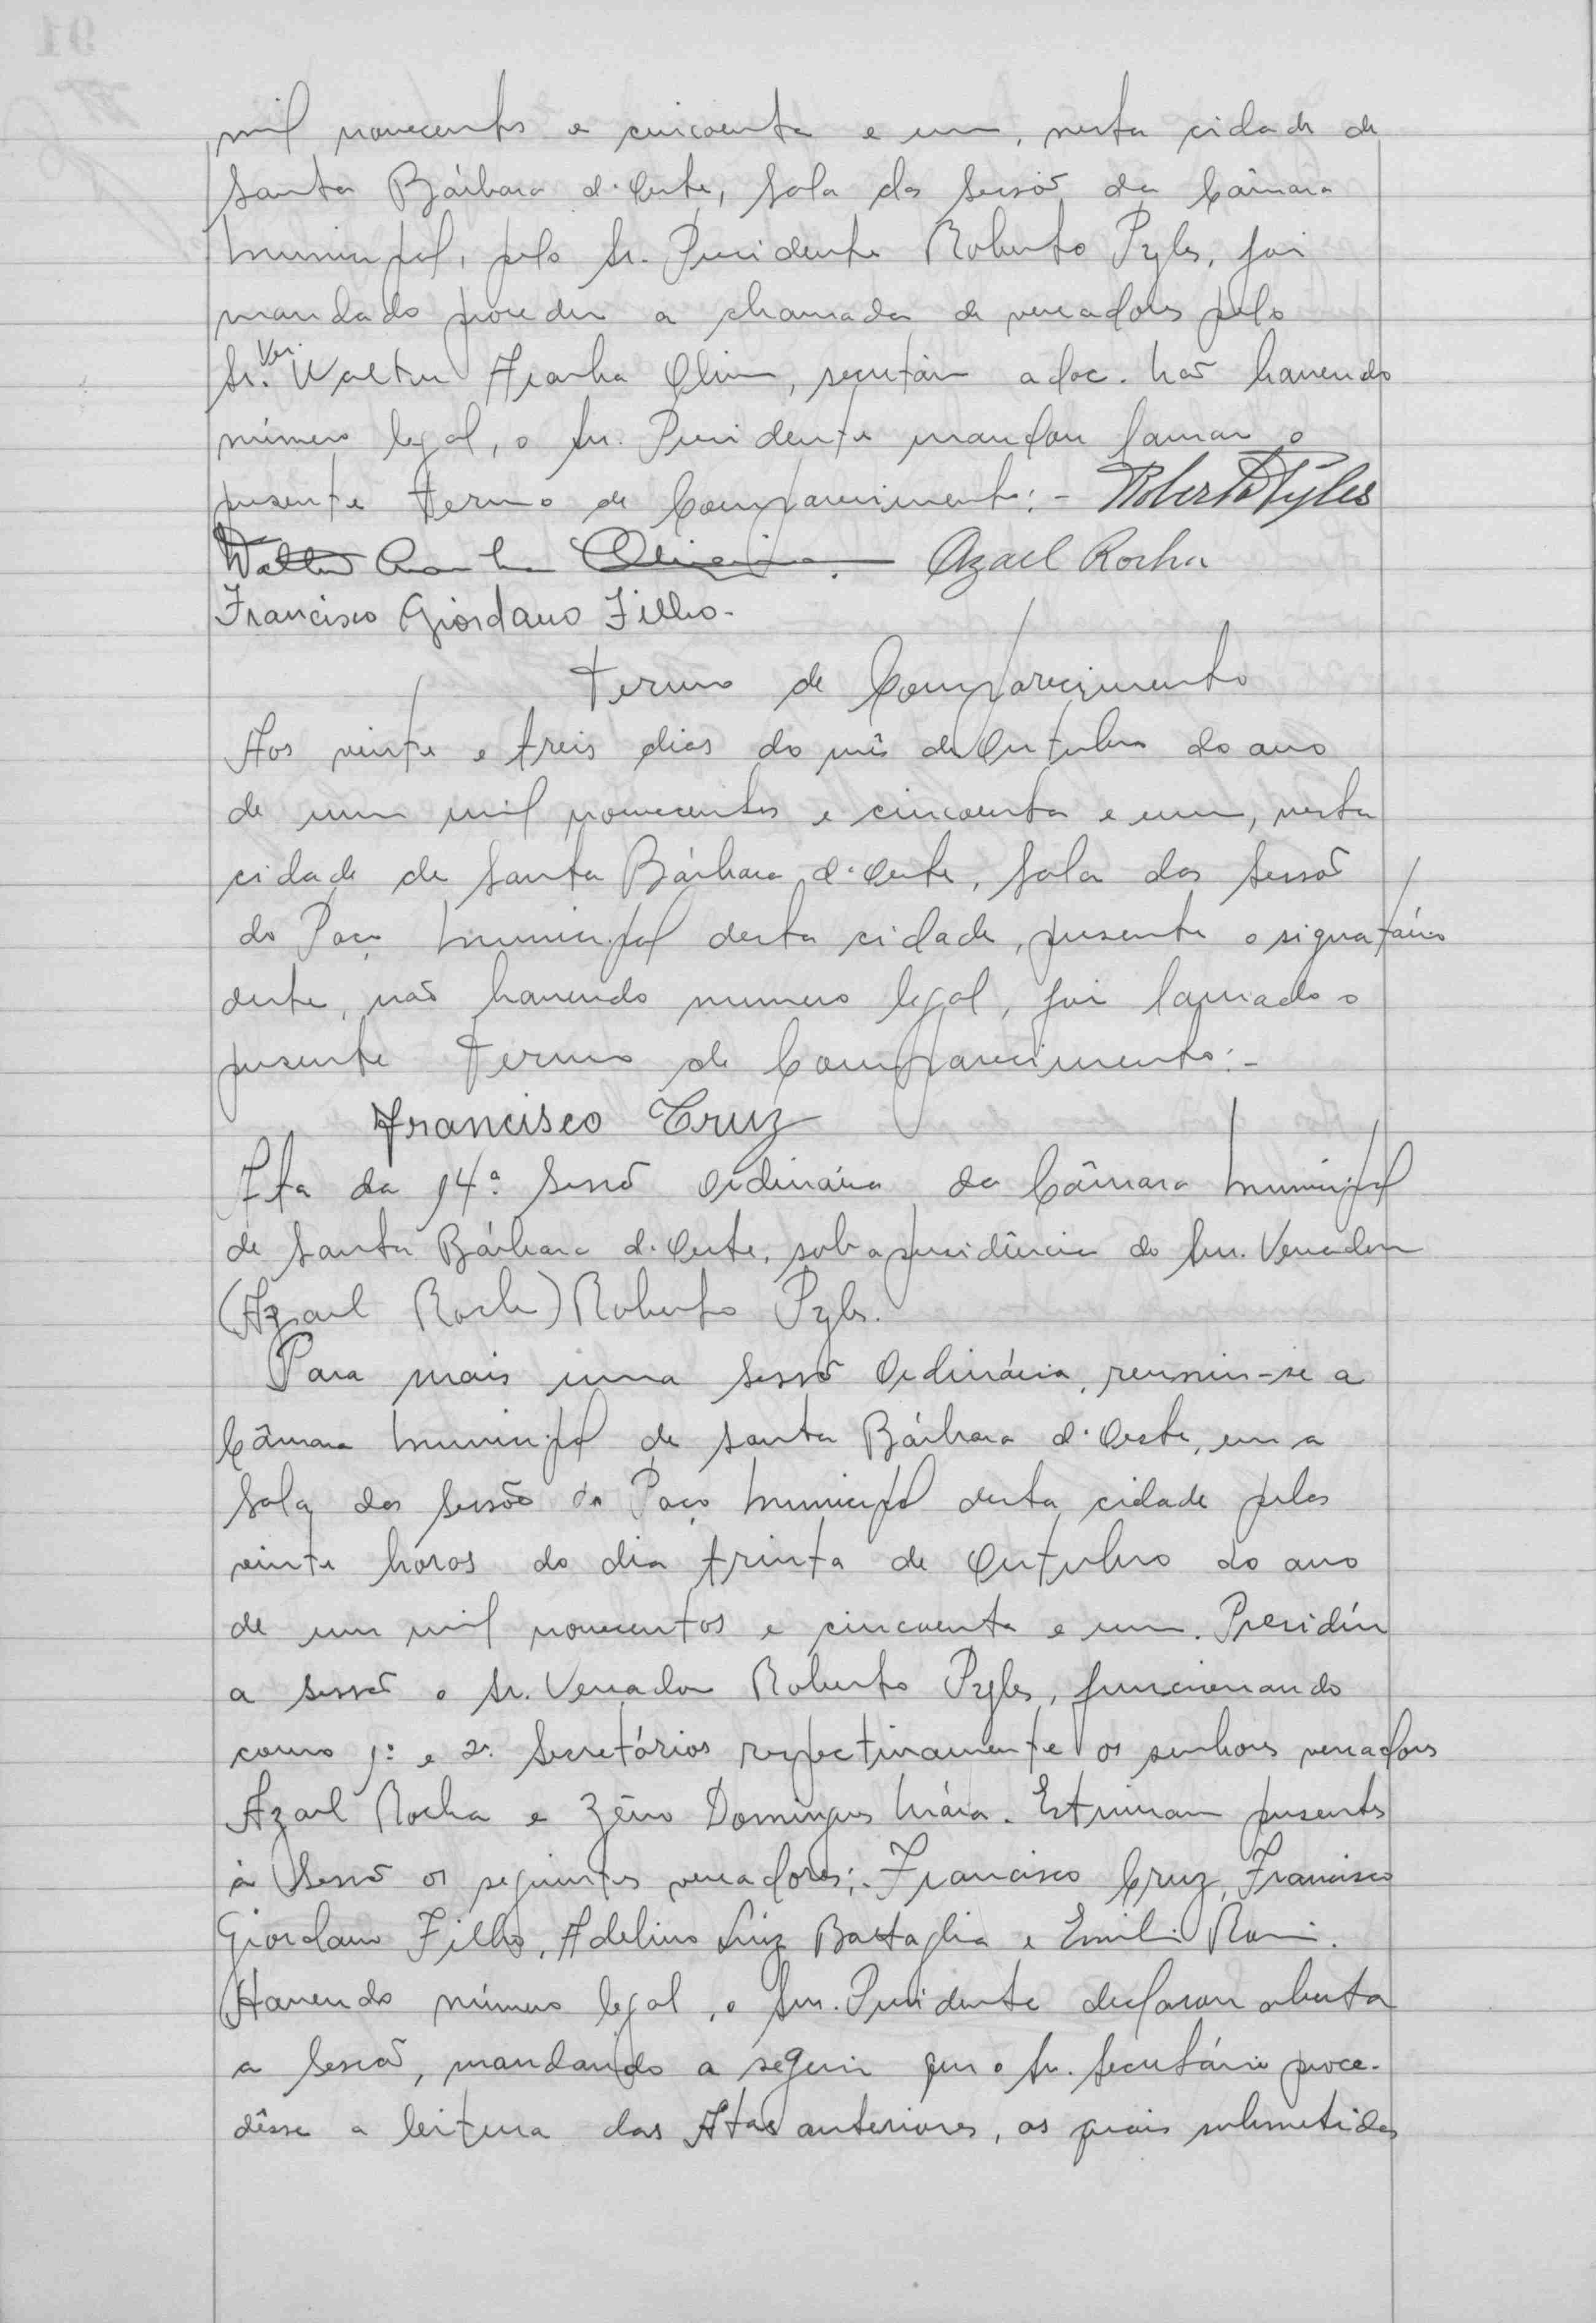 mil novecentos e cincoenta e um, nesta cidade de
Santa Bárbara d'Oeste, Sala das Sessões da Câmara
Municipal, pelo Sr. Presidente Roberto Pyles, foi
mandado proceder a chamada de vereadores pelo
Sr. Ver. Walter Aranha Oliveira, secretário adoc. Não havendo
número legal, o Snr. Presidente mandou lavrar o
presente Termo de Comparecimento:- Roberto Pyles
Walter Aranha Oliveira. Azael Rocha
Francisco Giordano Filho-
Termo de Comparecimento
Aos vinte e treis dias do mês de Outubro do ano
de um mil novecentos e cincoenta e um, nesta
cidade de Santa Bárbara d'Oeste, Sala das Sessões
do Paço Municipal desta cidade, presente o signatário
deste, não havendo numero legal, foi lavrado o
presente Termo de Comparecimento:-
Francisco Cruz
Ata da 14ª Sessão Ordinária da Câmara Municipal
de Santa Bárbara d'Oeste, sob a presidência do Snr. Vereador
(Azael Rocha) Roberto Pyles.
Para mais uma Sessão Ordinária, reuniu-se a
Câmara Municipal de Santa Bárbara d'Oeste, em a
Sala das Sessões do Paço Municipal desta cidade pelas
vinte horas do dia trinta de Outubro do ano
de um mil novecentos e cincoenta e um. Presidiu
a sessão o Sr. Vereador Roberto Pyles, funcionando
como 1º e 2º Secretários respectivamente os senhores vereadores
Azael Rocha e Zêno Domingues Máia. Estiveram presentes
à Sessão os seguintes vereadores:- Francisco Cruz, Francisco
Giordano Filho, Adelino Luiz Battaglia e Emilio Romi.
Havendo número legal, o Snr. Presidente declarou aberta
a Sessão, mandando a seguir que o Sr. Secretário proce-
dêsse a leitura das Atas anteriores, as quais submetidas